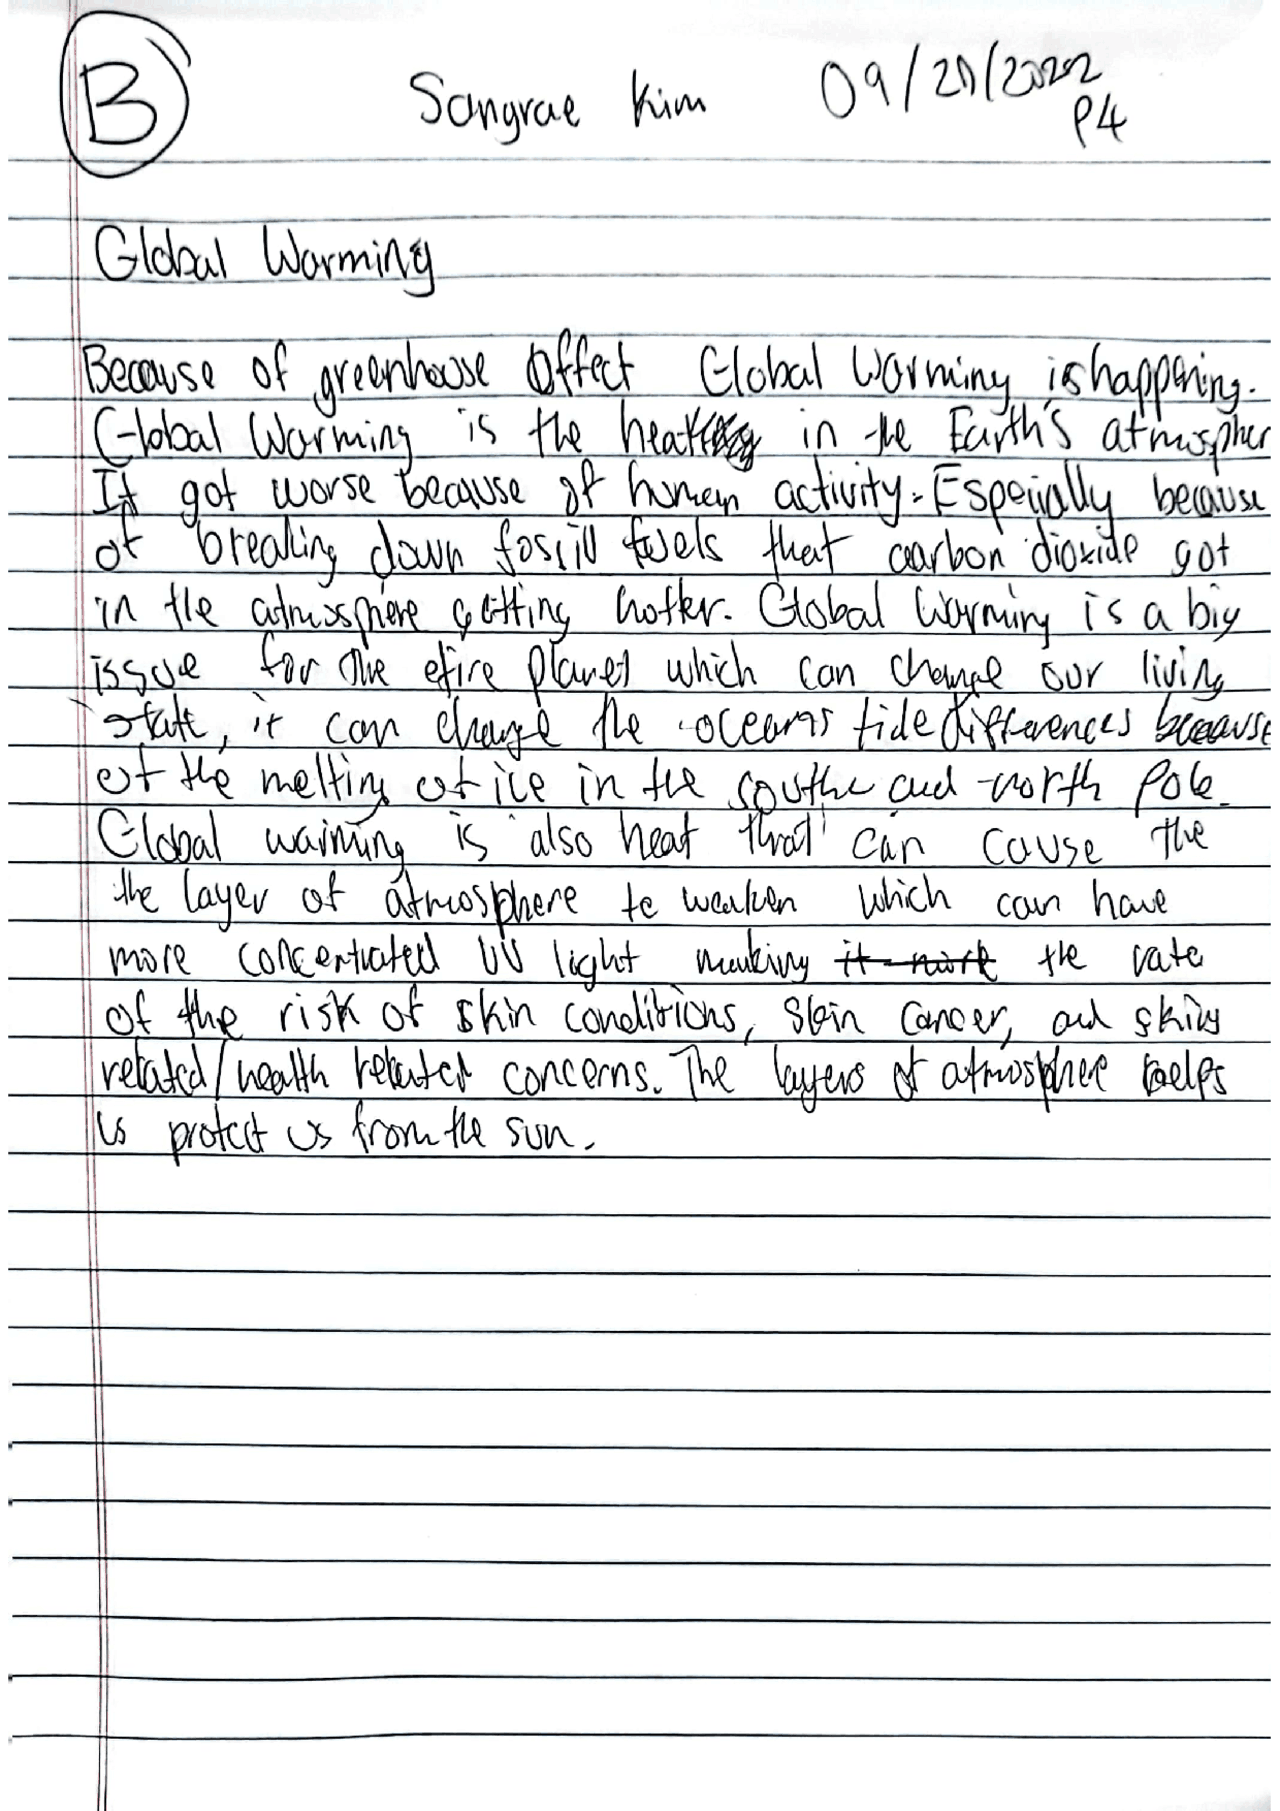 B
Sangrae Kim 09/20/2022
P4
Global Warming
Because of greenhouse effect Global Warming is happening.
Global Warming is the heat in the Earth's atmospher
It got worse because of human activity. Especially because
of breaking down fossill fuels that carbon dioxide got
in the atmosphere getting hotter. Global Warming is a big
issue for the etire planet which can change our living
state, it can change the oceans tide differences because
of the melting of ice in the southe and north Pole.
Global warming is also heat that can cause the
the layer of atmosphere to weaken which can have
more concentrated UV light making it more the rate
of the risk of skin conditions, skin cancer, and skin
related/health related concerns. The layers of atmosphere helps
us protect us from the sun.